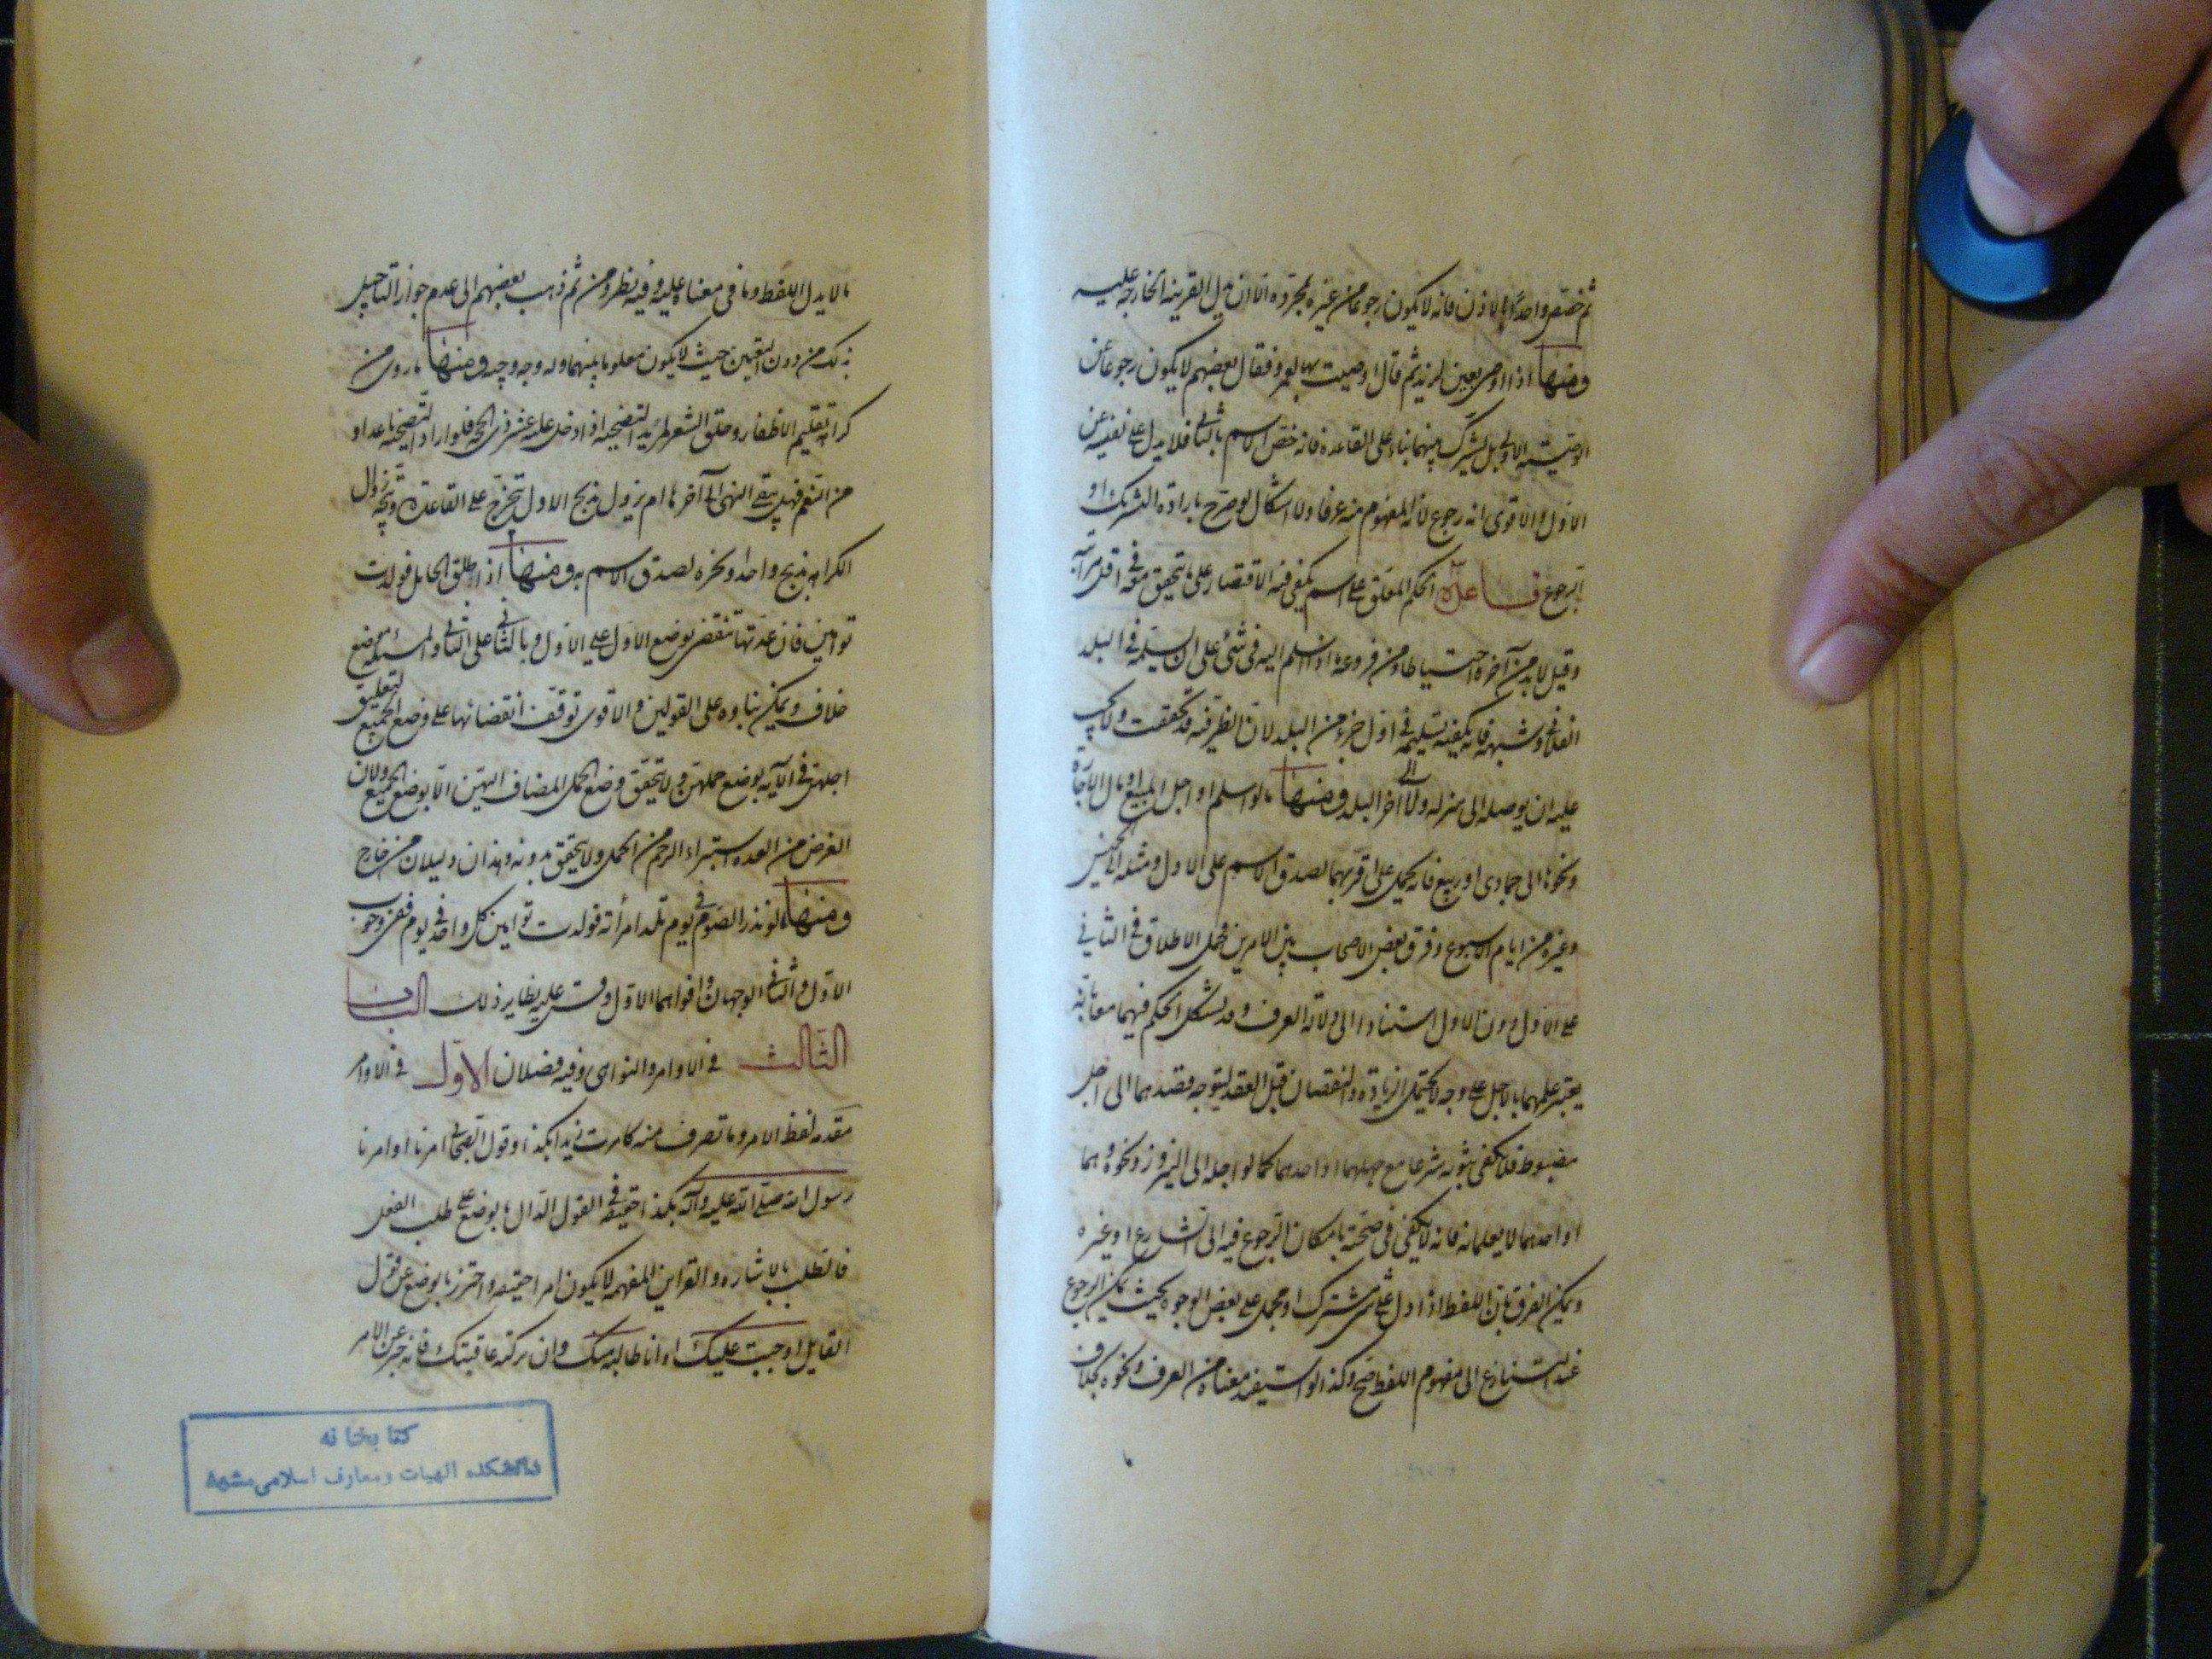 ثم خصّ واحدًا بالاذن فانه لا يكون رجوعا من غيره بمجرده الا ان تدل القرينه الخارجه عليه
ومنها اذا اوصى بعين لزيد ثم قال اوصيت بها لعمرو فقال بعضهم لا يكون رجوعا عن
الوصيته الاولى بل يشترك بينهما بناء على القاعدة فانه خصّ الاسم بالثانى فلا يدل على نفيه عن
الاول والاقوى انه رجوع لانه المفهوم منه عرفا ولا اشكال لو صرح بارادة التشريك او
الرجوع قاعدة الحكم المعلق على اسم يكفى فيه الاقتصار على ما يتحقق معه فى اقل مراتبه
وقيل لا بد من آخره احتياطا ومن فروعه اذا اسلم اليه فى شئ على ان يسلمه فى البلد
الفلانى وشبهه فانه يكفيه تسليمه فى اول جزء من البلد لان الظرفيه قد تحققت ولا يجب
عليه ان يوصله الى منزله ولا الى آخر البلد ومنها ما لو اسلم او اجل المبيع او مال الاجارة
ونحوها الى جمادى او ربيع فانه يحمل على اقربهما لصدق الاسم على الاول ومثله الى الخميس
وغيره من ايام الاسبوع وفرق بعض الاصحاب بين الامرين فحمل الاطلاق فى الثانى
على الاول دون الاول استنادا الى دلالة العرف وقد يشكل الحكم فيهما معا بانه
يعتبر علمهما بالاجل على وجه لا يحتمل الزيادة والنقصان قبل العقد ليتوجه قصدهما الى اجل
مضبوط فلا يكفى ثبوته شرعا مع جهلهما او احدهما كما لو اجله الى النيروز ونحوه وهما
او احدهما لا يعلمانه فانه لا يكفى فى صحته بامكان الرجوع فيه الى الشارع او غيره
ويمكن الفرق بان اللفظ اذا دل على شئ مشترك او مجمل على بعض الوجوه بحيث يمكن الرجوع
عند التنازع الى مفهوم اللفظ صح وكذا لو استفيد معناه من العرف ونحوه بخلاف
ما لا يدل اللفظ وما فى معناه عليه وفيه نظر ومن ثم ذهب بعضهم الى عدم جواز التاجيل
بذلك من دون التعيين حيث لا يكون معلوما بينهما وله وجه وجيه ومنها ما روى من
كراهة تقليم الاظفار وحلق الشعر لمريد التضحيه اذا دخل عليه عشر ذى الحجه فلو اراد التضحيه باعداد
من النعم فهل يبقى النهى الى آخرها ام يزول بذبح الاول يتخرج على القاعدة ويتجه زوال
الكراهه بذبح واحد ونحره لصدق الاسم به ومنها اذا طلق الحامل فولدت
توامين فان عدتها تنقضى بوضع الاول على الاول وبالثانى على الثانى والمسئلة موضع
خلاف ويمكن بناوه على القولين والاقوى توقف انقضائها على وضع الجميع لتعليق
اجلهن فى الآيه بوضع حملهن ولا يتحقق وضع الحمل المضاف اليهن الا بوضع الجميع ولان
الغرض من العده استبراء الرحم من الحمل ولا يتحقق بدونه وهذان دليلان من خارج
ومنها لو نذر الصوم فى يوم تلد امرأته فولدت توامين كل واحد فى يوم ففى وجوب
الاول والثانى الوجهان واقواهما الاول وقس عليه نظاير ذلك الباب
الثالث فى الاوامر والنواهى وفيه فصلان الاول فى الاوامر
مقدمه لفظ الامر وما تصرف منه كامرت زيدا بكذا وقول الصحابى امرنا او امرنا
رسول الله صلى الله عليه وآله بكذا حقيقه فى القول الدال بالوضع على طلب الفعل
فالطلب بالاشاره والقراين المفهمه لا يكون امرا حقيقه واحترزنا بالوضع عن قول
القايل اوجبت عليك او انا طالبه منك وان تركته عاقبتك فانه خبر عن الامر
كتابخانه
دانشكده الهيات ومعارف اسلامى مشهد